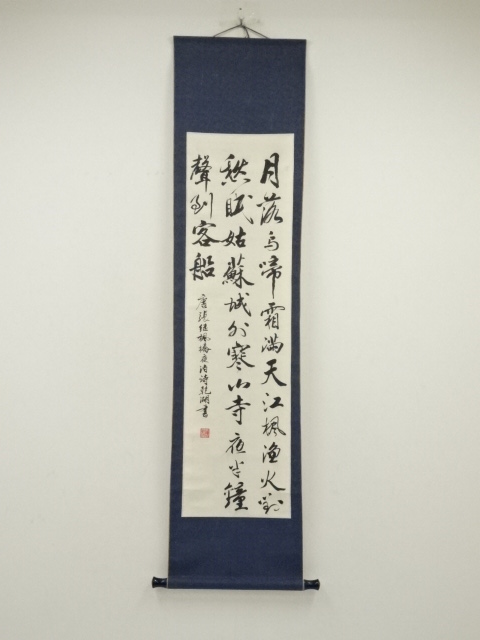 月落烏啼霜滿天江楓漁火對
愁眠姑蘇城外寒山寺夜半鐘
聲到客船
唐張繼楓橋夜泊詩乾湖書